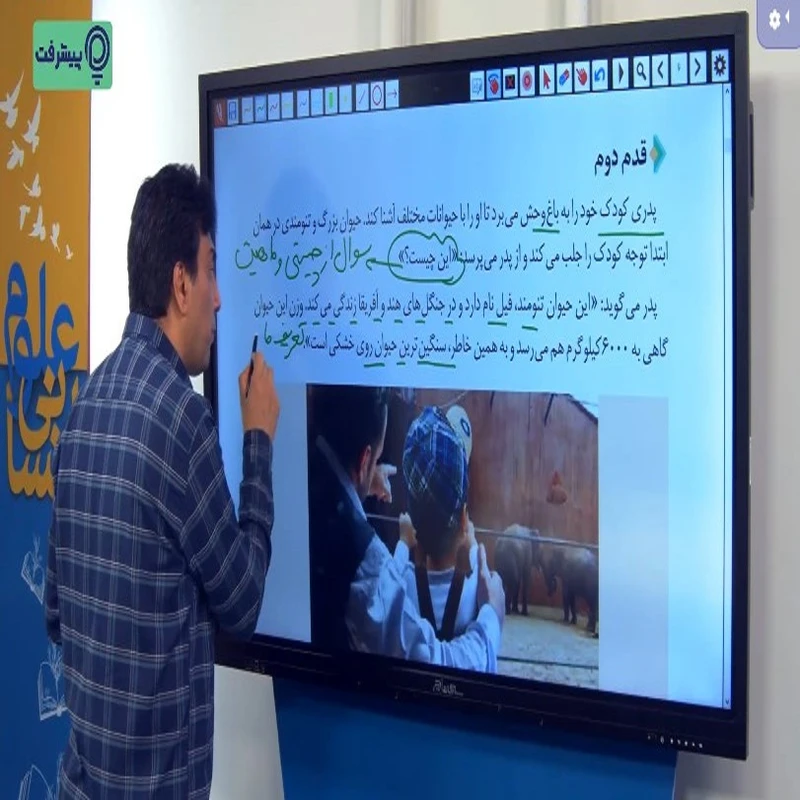 پیشرفت
قدم دوم
پدری کودک خود را به باغ‌وحش می‌برد تا او را با حیوانات مختلف آشنا کند. حیوان بزرگ و تنومندی در همان
ابتدا توجه کودک را جلب می کند و از پدر می‌پرسد: «این چیست؟» سوال از چیستی و ماهیت
پدر می‌گوید: «این حیوان تنومند، فیل نام دارد و در جنگل‌های هند و آفریقا زندگی می کند. وزن این حیوان
گاهی به ۶۰۰۰ کیلوگرم هم می‌رسد و به همین خاطر، سنگین‌ترین حیوان روی خشکی است». تعریف ما
علوم
انسانی